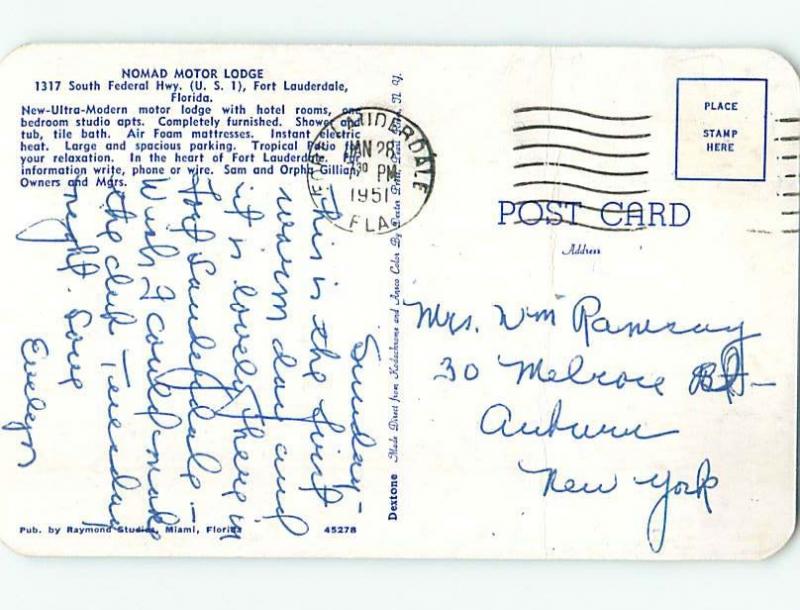 NOMAD MOTOR LODGE
1317 South Federal Hwy. (U. S. 1), Fort Lauderdale,
Florida.
New-Ultra-Modern motor lodge with hotel rooms, one
bedroom studio apts. Completely furnished. Shower and
tub, tile bath. Air Foam mattresses. Instant electric
heat. Large and spacious parking. Tropical Patio for
your relaxation. In the heart of Fort Lauderdale. For
information write, phone or wire. Sam and Orpha Gillian,
Owners and Mgrs.
Sunday -
This is the first
warm day and
it is lovely here in
Fort Lauderdale -
Wish I could make
the club Tuesday
night. Love
Evelyn
Pub. by Raymond Studios, Miami, Florida
45278
Dextone Made Direct from Kodachrome and Ansco Color By Dexter Press, Pearl River, N. Y.
FORT LAUDERDALE
JAN 28
7 30 PM
1951
FLA
PLACE
STAMP
HERE
POST CARD
Address
Mrs. Wm Ramsay
30 Melrose
Auburn
New York